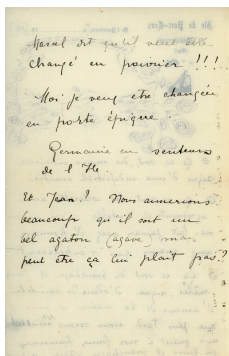 Marcel dit qu'il veut être
changé en pourrier !!!
Moi je veux être changée
en porte épique.
Germaine en senteurs
de l'Ile.
Et Jean ? Nous aimerions
beaucoup qu'il soit un
bel agaton (agave) mais
peut être ça lui plait pas ?